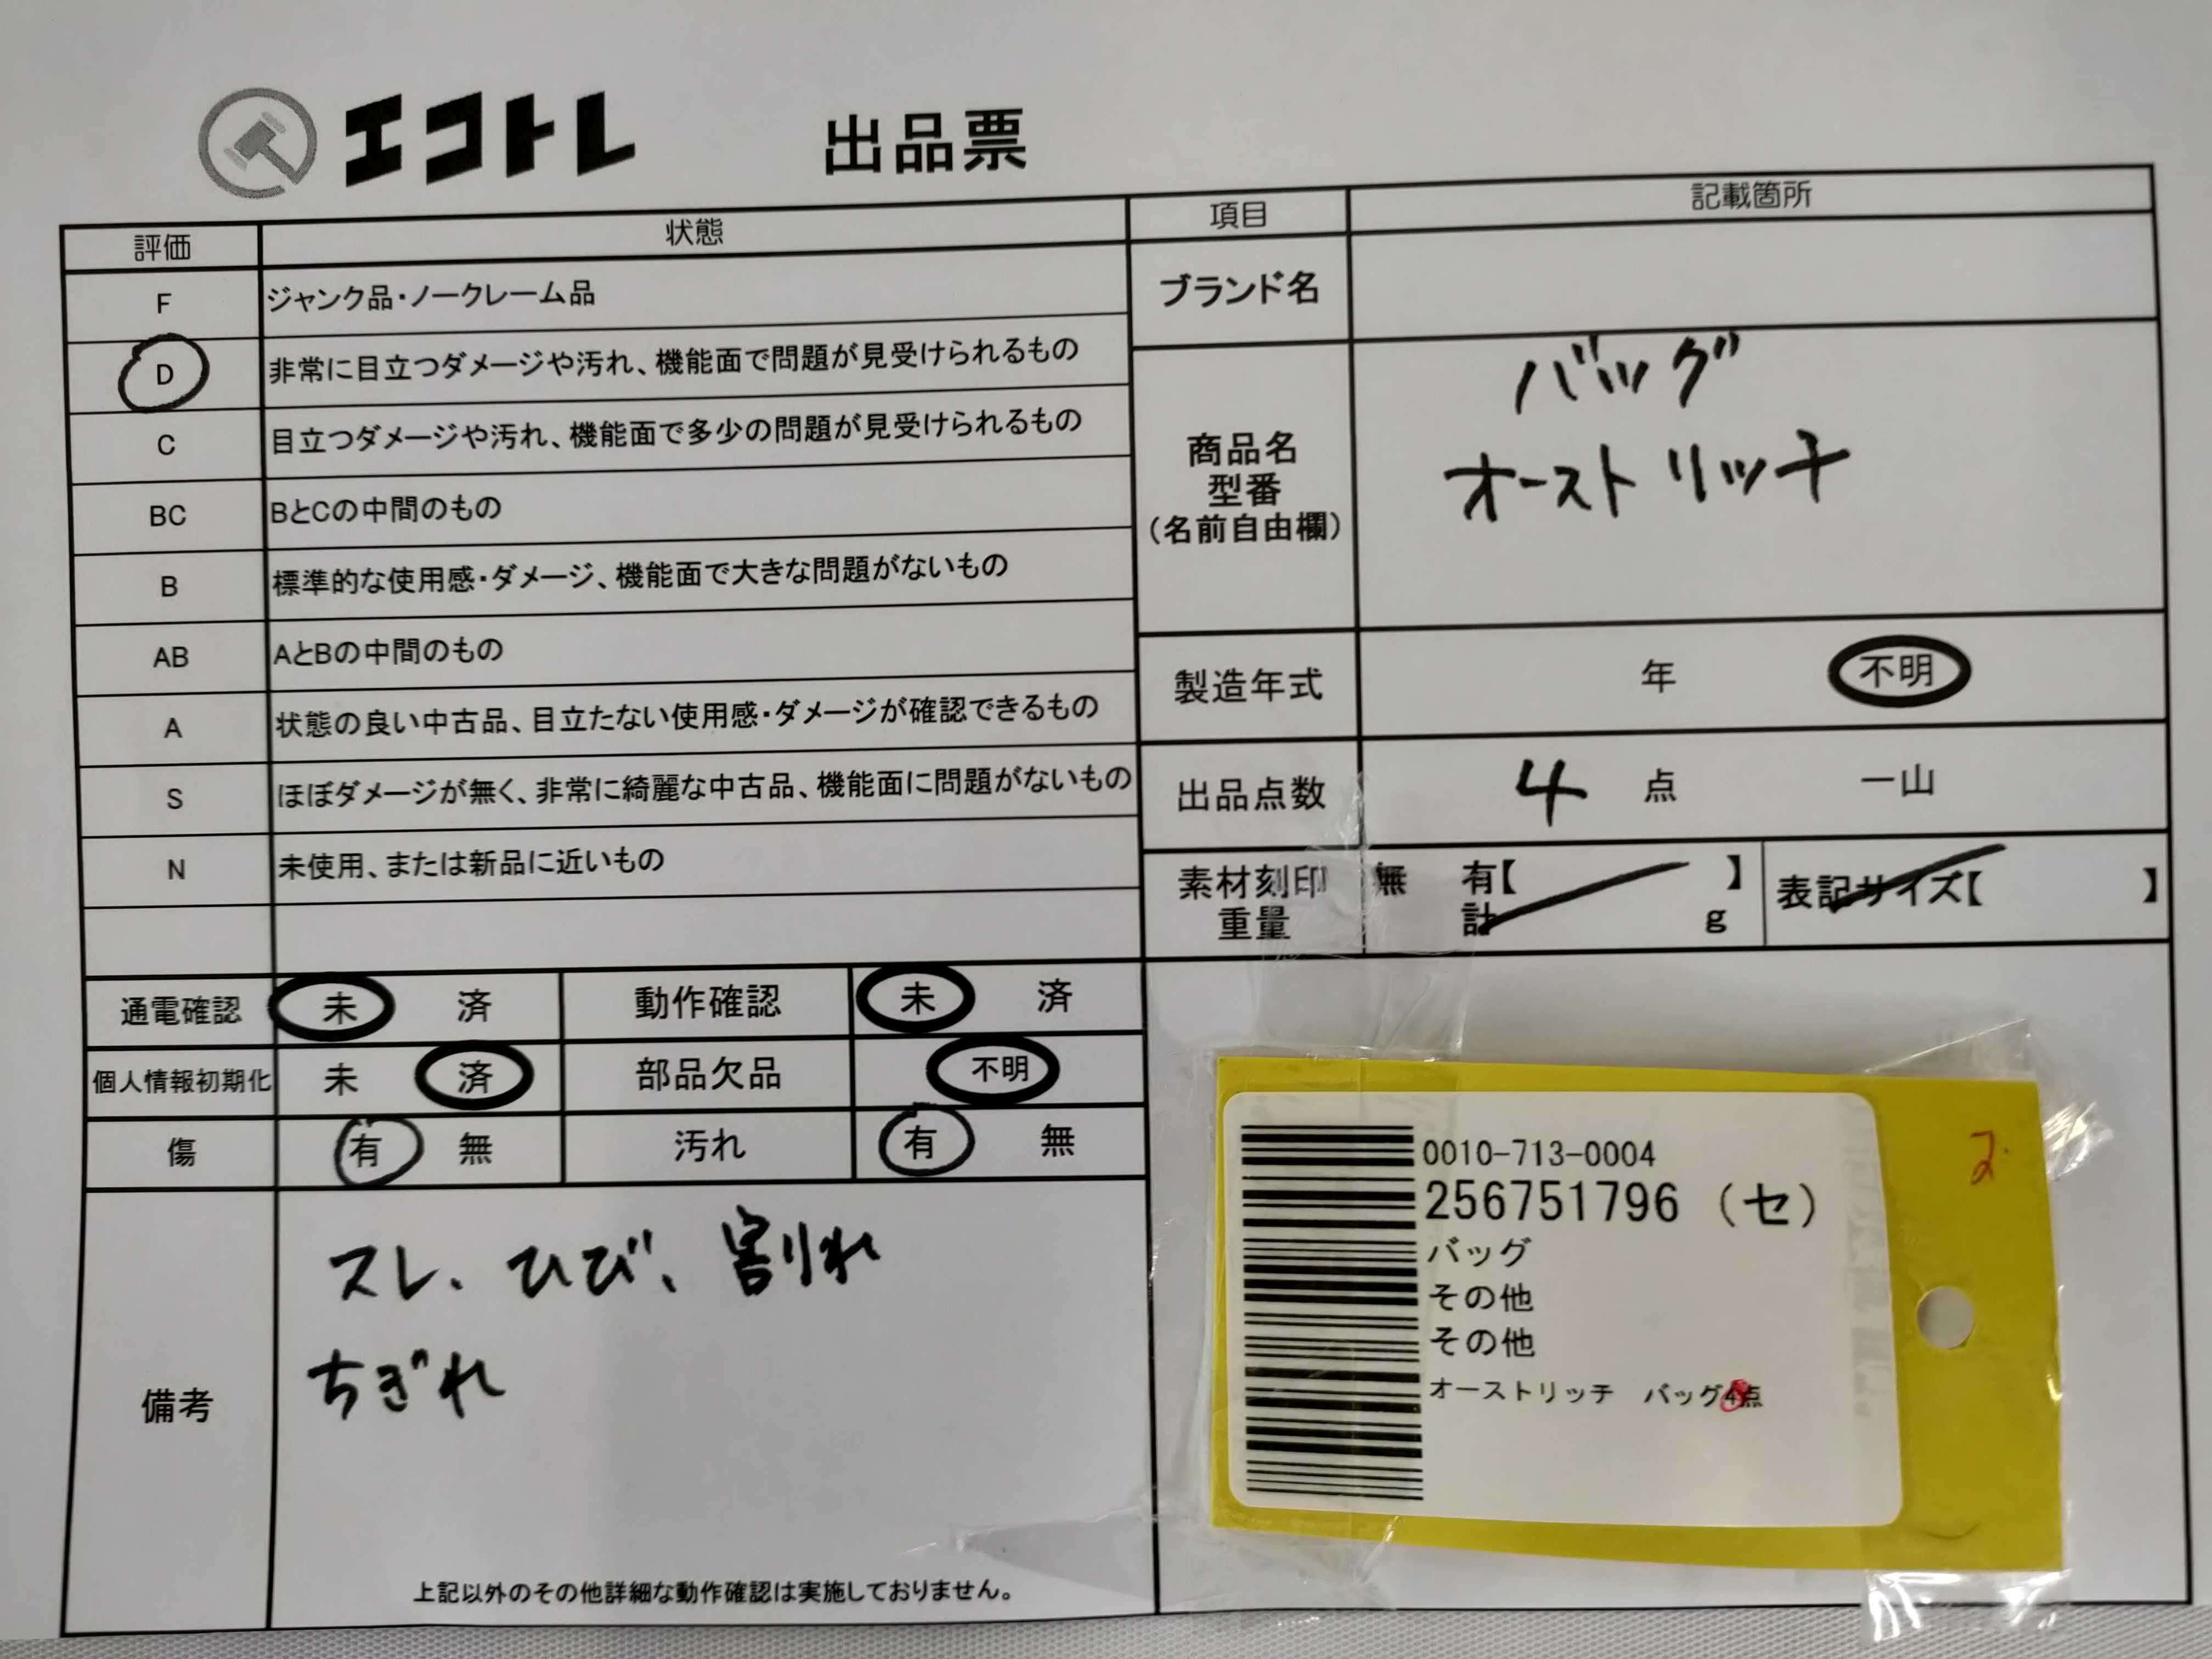 エコトレ 出品票
評価 状態
F ジャンク品・ノークレーム品
D 非常に目立つダメージや汚れ、機能面で問題が見受けられるもの
C 目立つダメージや汚れ、機能面で多少の問題が見受けられるもの
BC BとCの中間のもの
B 標準的な使用感・ダメージ、機能面で大きな問題がないもの
AB AとBの中間のもの
A 状態の良い中古品、目立たない使用感・ダメージが確認できるもの
S ほぼダメージが無く、非常に綺麗な中古品、機能面に問題がないもの
N 未使用、または新品に近いもの
通電確認 未 済 動作確認 未 済
個人情報初期化 未 済 部品欠品 不明
傷 有 無 汚れ 有 無
備考
スレ、ひび、割れ
ちぎれ
上記以外のその他詳細な動作確認は実施しておりません。
項目 記載箇所
ブランド名
商品名
型番
(名前自由欄)
バッグ
オーストリッチ
製造年式 年 不明
出品点数 4 点 一山
素材刻印 無 有【 】 表記サイズ【 】
重量 計 g
0010-713-0004
256751796 (セ)
バッグ
その他
その他
オーストリッチ バッグ4点
2